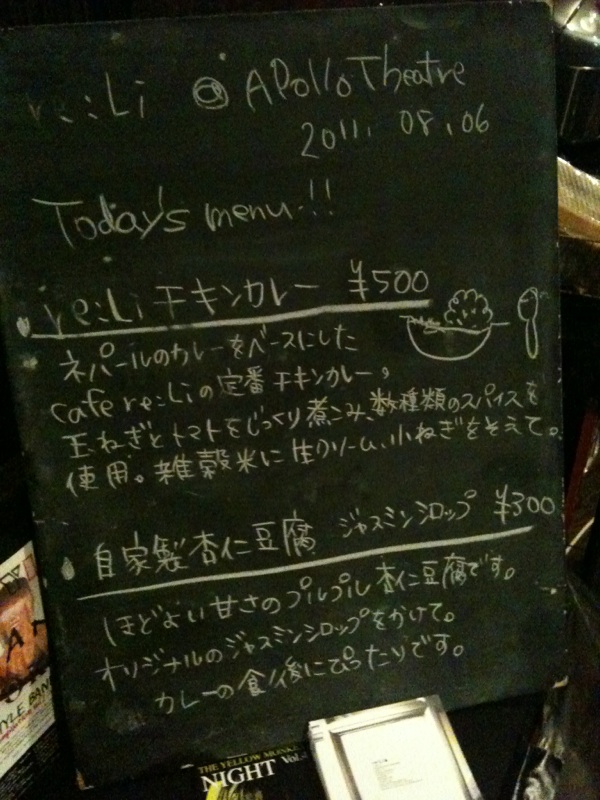 re:Li @ Apollo Theatre
2011. 08. 06
Today's menu!!
re:Li チキンカレー ¥500
ネパールのカレーをベースにした
cafe re:Liの定番チキンカレー。
玉ねぎとトマトをじっくり煮こみ、数種類のスパイスを
使用。雑穀米に生クリーム、小ねぎをそえて。
自家製杏仁豆腐 ジャスミンシロップ ¥300
ほどよい甘さのプルプル杏仁豆腐です。
オリジナルのジャスミンシロップをかけて。
カレーの食後にぴったりです。
THE YELLOW MONKE
NIGHT Vol.